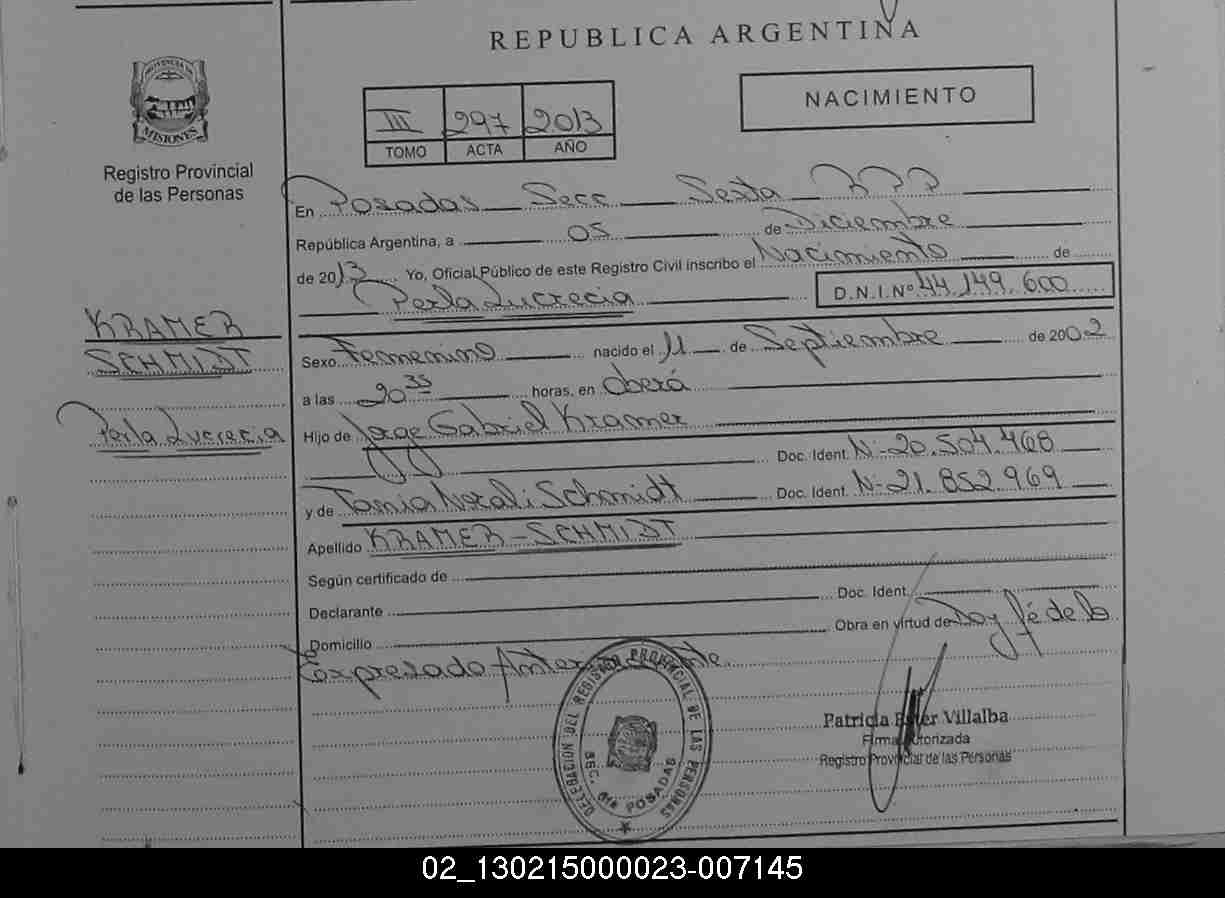 REPUBLICA ARGENTINA
PROVINCIA DE
MISIONES
Registro Provincial
de las Personas
III 297 2013
TOMO ACTA AÑO
NACIMIENTO
En Posadas Secc Sexta
República Argentina, a 05 de Diciembre
de 2013 Yo, Oficial Público de este Registro Civil inscribo el Nacimiento de
Perla Lucrecia D.N.I.Nº 44.149.600
KRAMER
SCHMIDT
Perla Lucrecia
Sexo Femenino nacido el 11 de Septiembre de 2002
a las 20 35 horas, en Oberá
Hijo de Jorge Gabriel Kramer
Doc. Ident. N-20.504.468
y de Tania Natali Schmidt Doc. Ident. N-21.852.969
Apellido KRAMER-SCHMIDT
Según certificado de
Declarante Doc. Ident.
Domicilio Obra en virtud de Doy fé de lo
Expresado Anteriormente.
DELEGACION DEL REGISTRO PROVINCIAL DE LAS PERSONAS
SEC. 6ta POSADAS
Patricia Ester Villalba
Firma Autorizada
Registro Provincial de las Personas
02_130215000023-007145